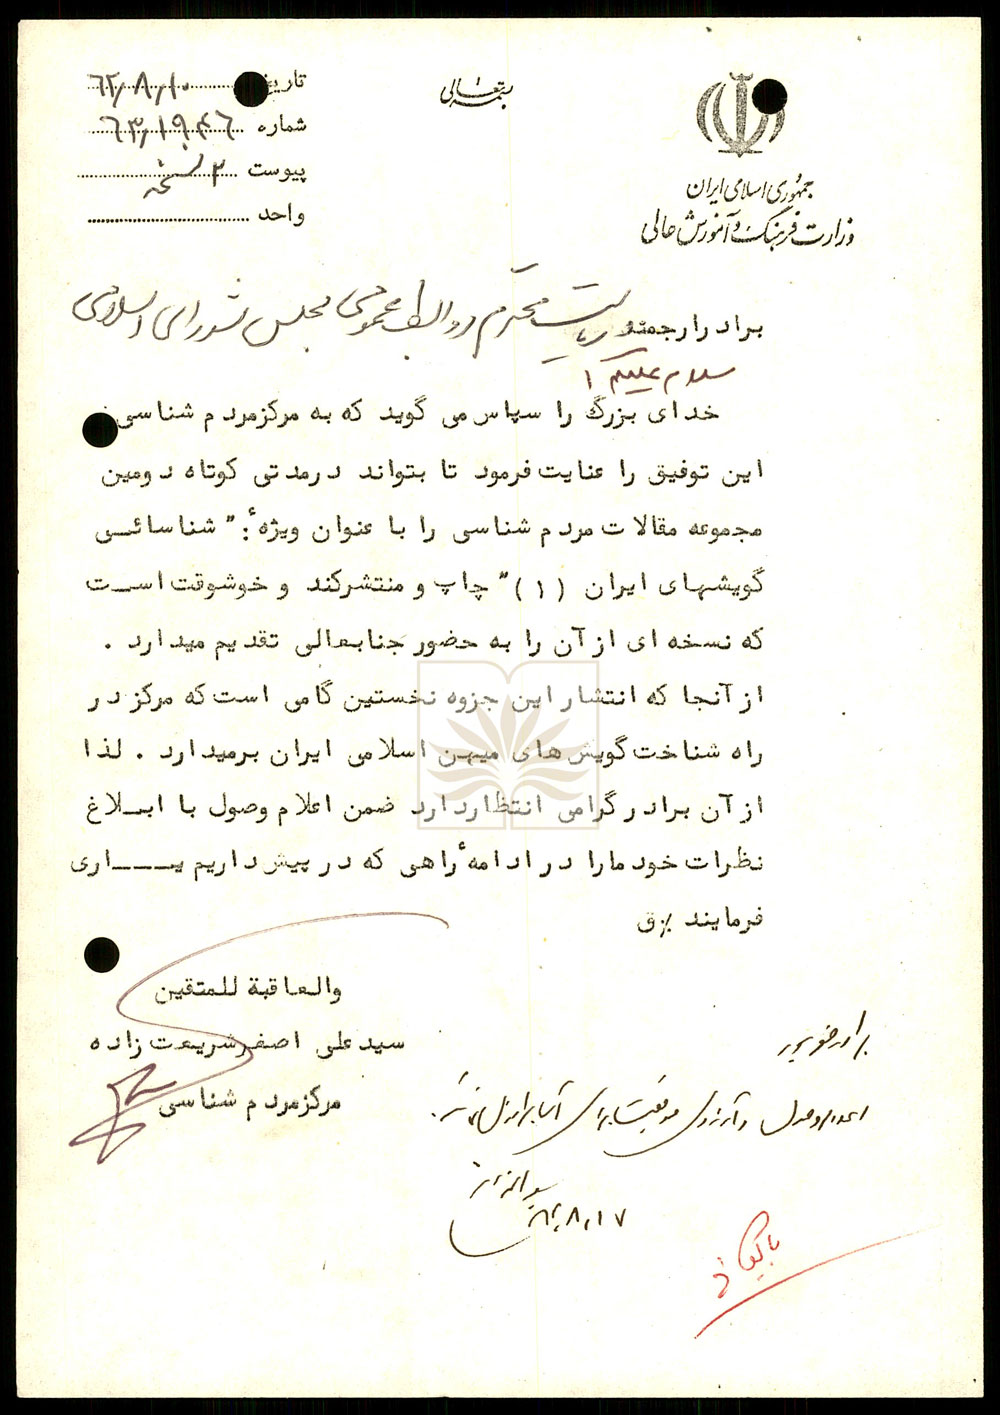 بسمه تعالی
جمهوری اسلامی ایران
وزارت فرهنگ و آموزش عالی
تاریخ ۶۲/۸/۱۰
شماره ۶۳/۱۹۴۶
پیوست ۲ نسخه
واحد
برادر ارجمند ریاست محترم روابط عمومی مجلس شورای اسلامی
سلام علیکم
خدای بزرگ را سپاس می گوید که به مرکز مردم شناسی
این توفیق را عنایت فرمود تا بتواند در مدتی کوتاه دومین
مجموعه مقالات مردم شناسی را با عنوان ویژهٔ: " شناسائی
گویشهای ایران (۱) " چاپ و منتشر کند و خوشوقت است
که نسخه ای از آن را به حضور جنابعالی تقدیم میدارد .
از آنجا که انتشار این جزوه نخستین گامی است که مرکز در
راه شناخت گویش های میهن اسلامی ایران برمیدارد . لذا
از آن برادر گرامی انتظار دارد ضمن اعلام وصول با ابلاغ
نظرات خود ما را در ادامهٔ راهی که در پیش داریم یاری
فرمایند ٪ق
والعاقبة للمتقین
سید علی اصغر شریعت زاده
مرکز مردم شناسی
برادر
اعلام وصول و آرزوی موفقیت برای آن برادران
۶۲،۸،۱۷
بایگانی